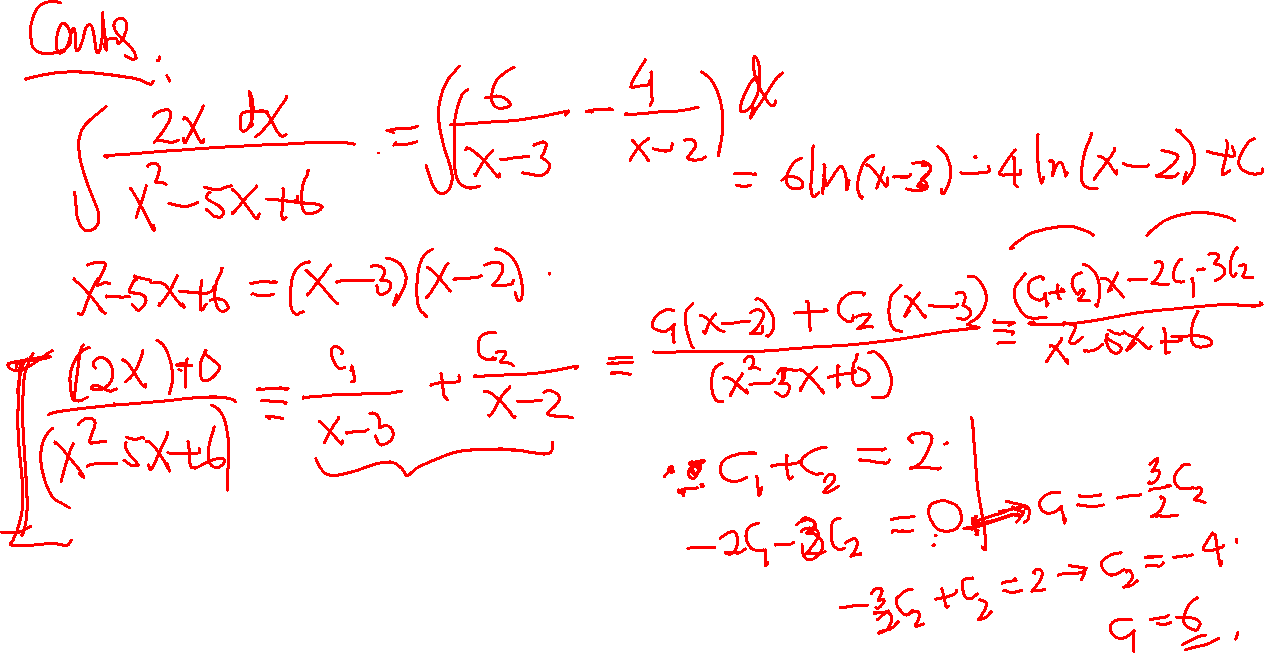 Contg.
∫ 2x dx / (x² - 5x + 6) = ∫ ( 6/(x-3) - 4/(x-2) ) dx
= 6 ln(x-3) - 4 ln(x-2) + C
x² - 5x + 6 = (x-3)(x-2).
((2x)+0) / (x² - 5x + 6) ≡ C₁/(x-3) + C₂/(x-2) ≡ (C₁(x-2) + C₂(x-3)) / (x² - 5x + 6) ≡ ((C₁+C₂)x - 2C₁ - 3C₂) / (x² - 5x + 6)
∴ C₁ + C₂ = 2
-2C₁ - 3C₂ = 0 → C₁ = -3/2 C₂
-3/2 C₂ + C₂ = 2 → C₂ = -4.
C₁ = 6.